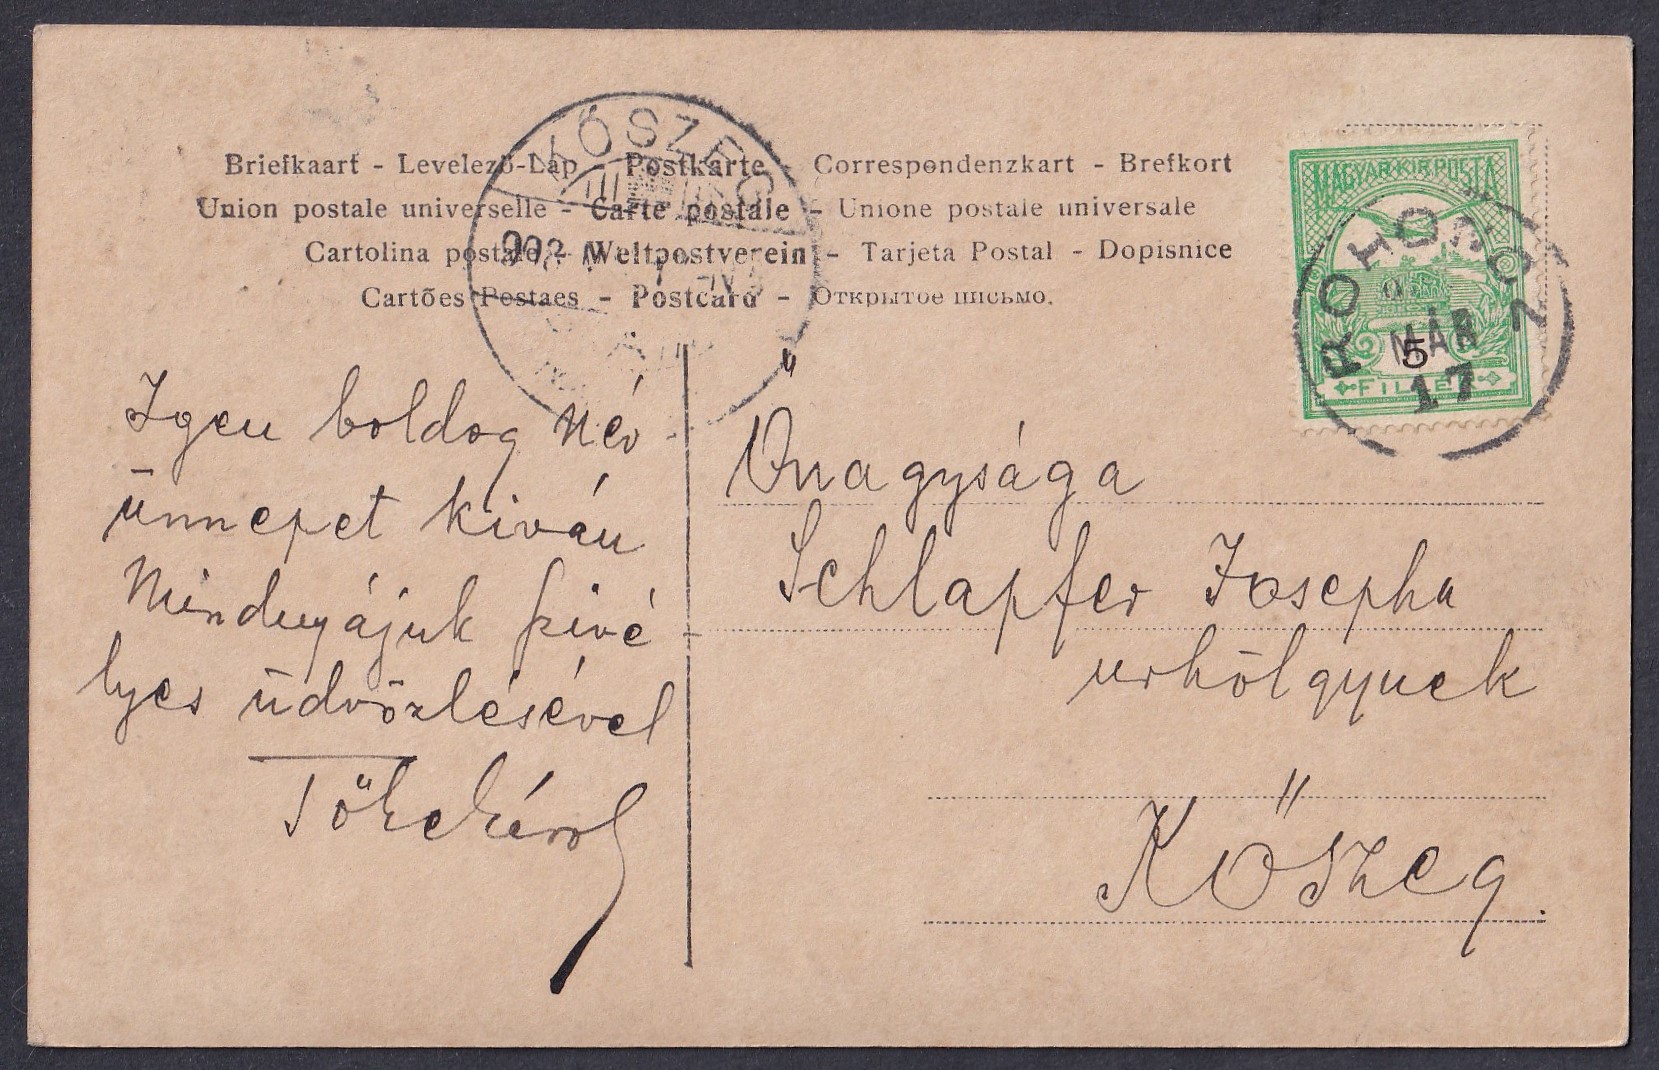 Briefkaart - Levelező-Lap - Postkarte - Correspondenzkart - Brefkort
Union postale universelle - Carte postale - Unione postale universale
Cartolina postale - Weltpostverein - Tarjeta Postal - Dopisnice
Cartões Postaes - Postcard - Открытое письмо.
KŐSZEG
908
MAGYAR KIR. POSTA
5
FILLÉR
ROHONCZ
MÁR
17
Igen boldog Név
ünnepet kiván
Mindnyájuk szivé
lyes üdvözlésével
Őnagysága
Schlapfer Josepha
urhölgynek
Kőszeg.